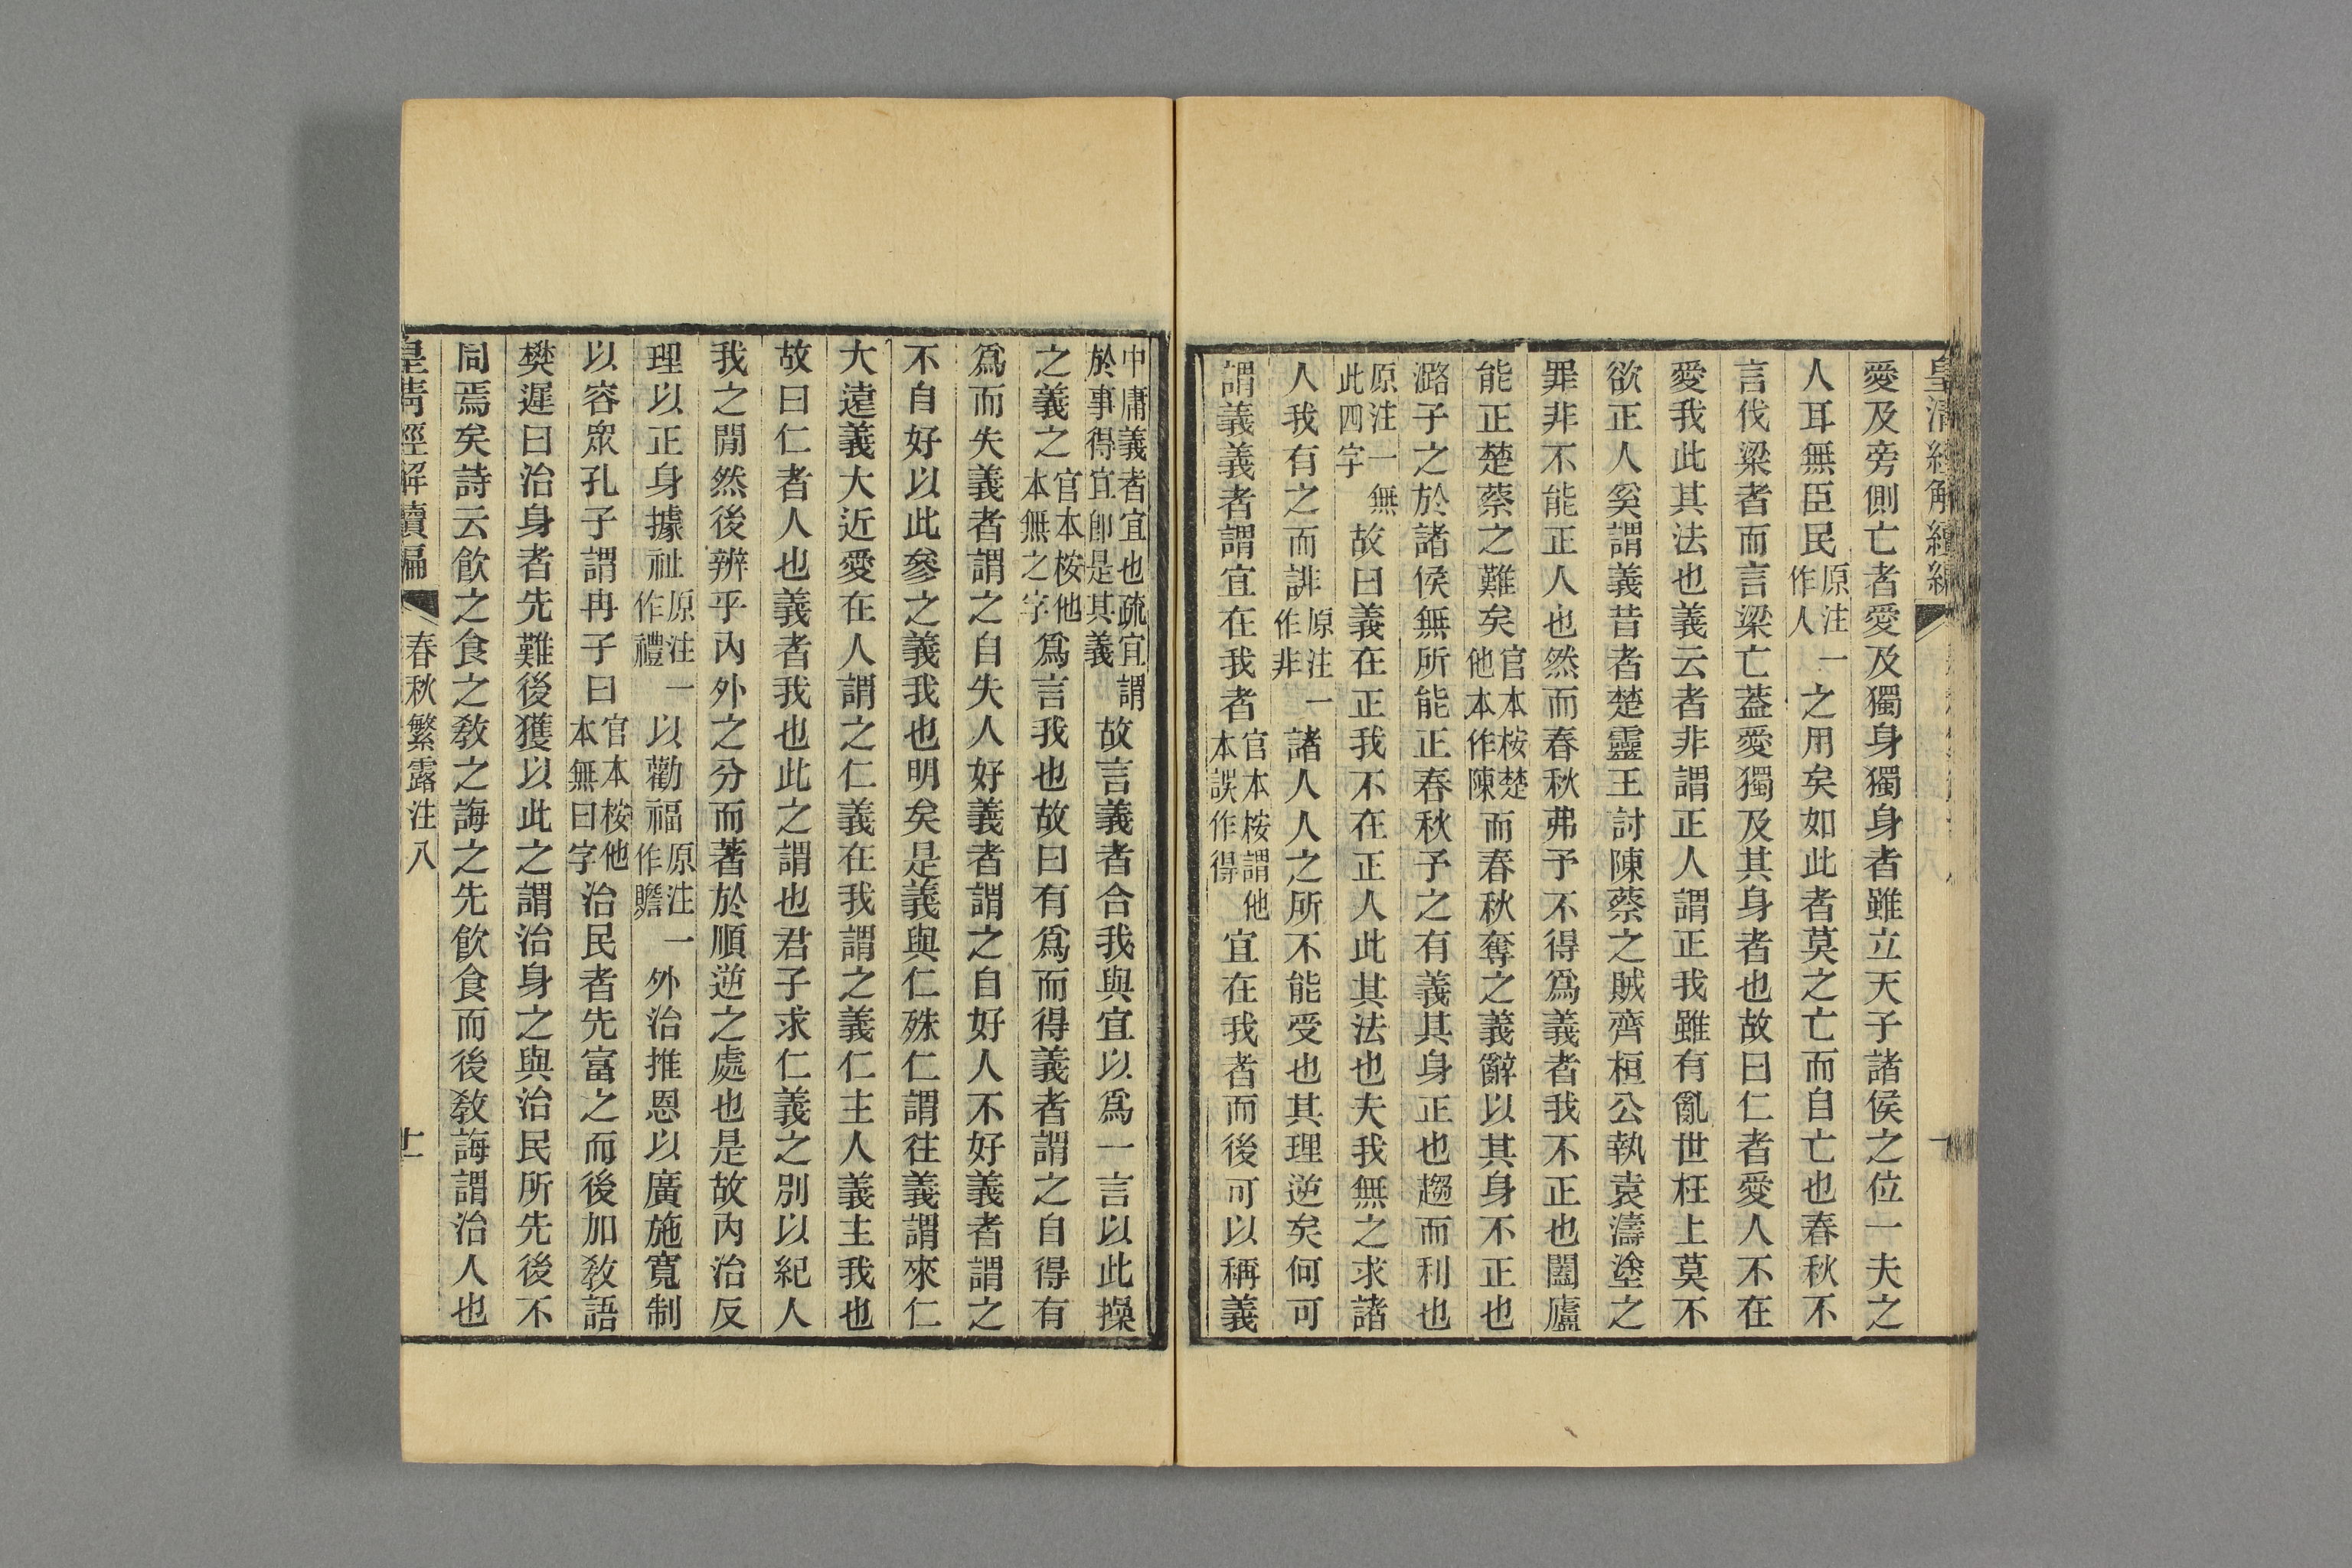 皇清經解續編
愛及旁側亡者愛及獨身獨身者雖立天子諸侯之位一夫之
人耳無臣民原注一作人之用矣如此者莫之亡而自亡也春秋不
言伐梁者而言梁亡葢愛獨及其身者也故曰仁者愛人不在
愛我此其法也義云者非謂正人謂正我雖有亂世枉上莫不
欲正人奚謂義昔者楚靈王討陳蔡之賊齊桓公執袁濤塗之
罪非不能正人也然而春秋弗予不得爲義者我不正也闔廬
能正楚蔡之難矣官本桉楚他本作陳而春秋奪之義辭以其身不正也
潞子之於諸侯無所能正春秋予之有義其身正也趨而利也
原注一無此四字故曰義在正我不在正人此其法也夫我無之求諸
人我有之而誹原注一作非諸人人之所不能受也其理逆矣何可
謂義義者謂宜在我者官本桉謂他本誤作得宜在我者而後可以稱義
中庸義者宜也疏宜謂於事得宜卽是其義故言義者合我與宜以爲一言以此操
之義之官本桉他本無之字爲言我也故曰有爲而得義者謂之自得有
爲而失義者謂之自失人好義者謂之自好人不好義者謂之
不自好以此參之義我也明矣是義與仁殊仁謂往義謂來仁
大遠義大近愛在人謂之仁義在我謂之義仁主人義主我也
故曰仁者人也義者我也此之謂也君子求仁義之別以紀人
我之閒然後辨乎內外之分而著於順逆之處也是故內治反
理以正身據祉原注一作禮以勸福原注一作贍外治推恩以廣施寬制
以容眾孔子謂冉子曰官本桉他本無曰字治民者先富之而後加敎語
樊遲曰治身者先難後獲以此之謂治身之與治民所先後不
同焉矣詩云飮之食之敎之誨之先飮食而後敎誨謂治人也
皇淸經解續編 春秋繁露注八